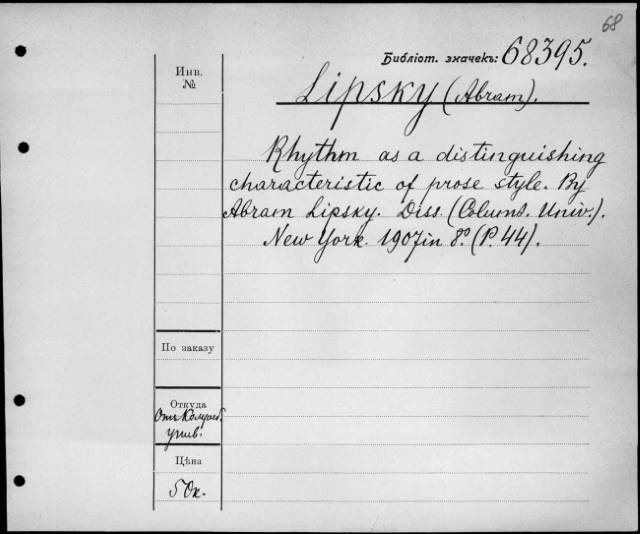 68
Библіот. значекъ: 68395.
Инв.
№
Lipsky (Abram).
Rhythm as a distinguishing
characteristic of prose style. By
Abram Lipsky. Diss. (Columb. Univ.).
New York. 1907 in 8º. (P. 44).
По заказу
Откуда
Отъ Колумб.
унив.
Цѣна
50к.